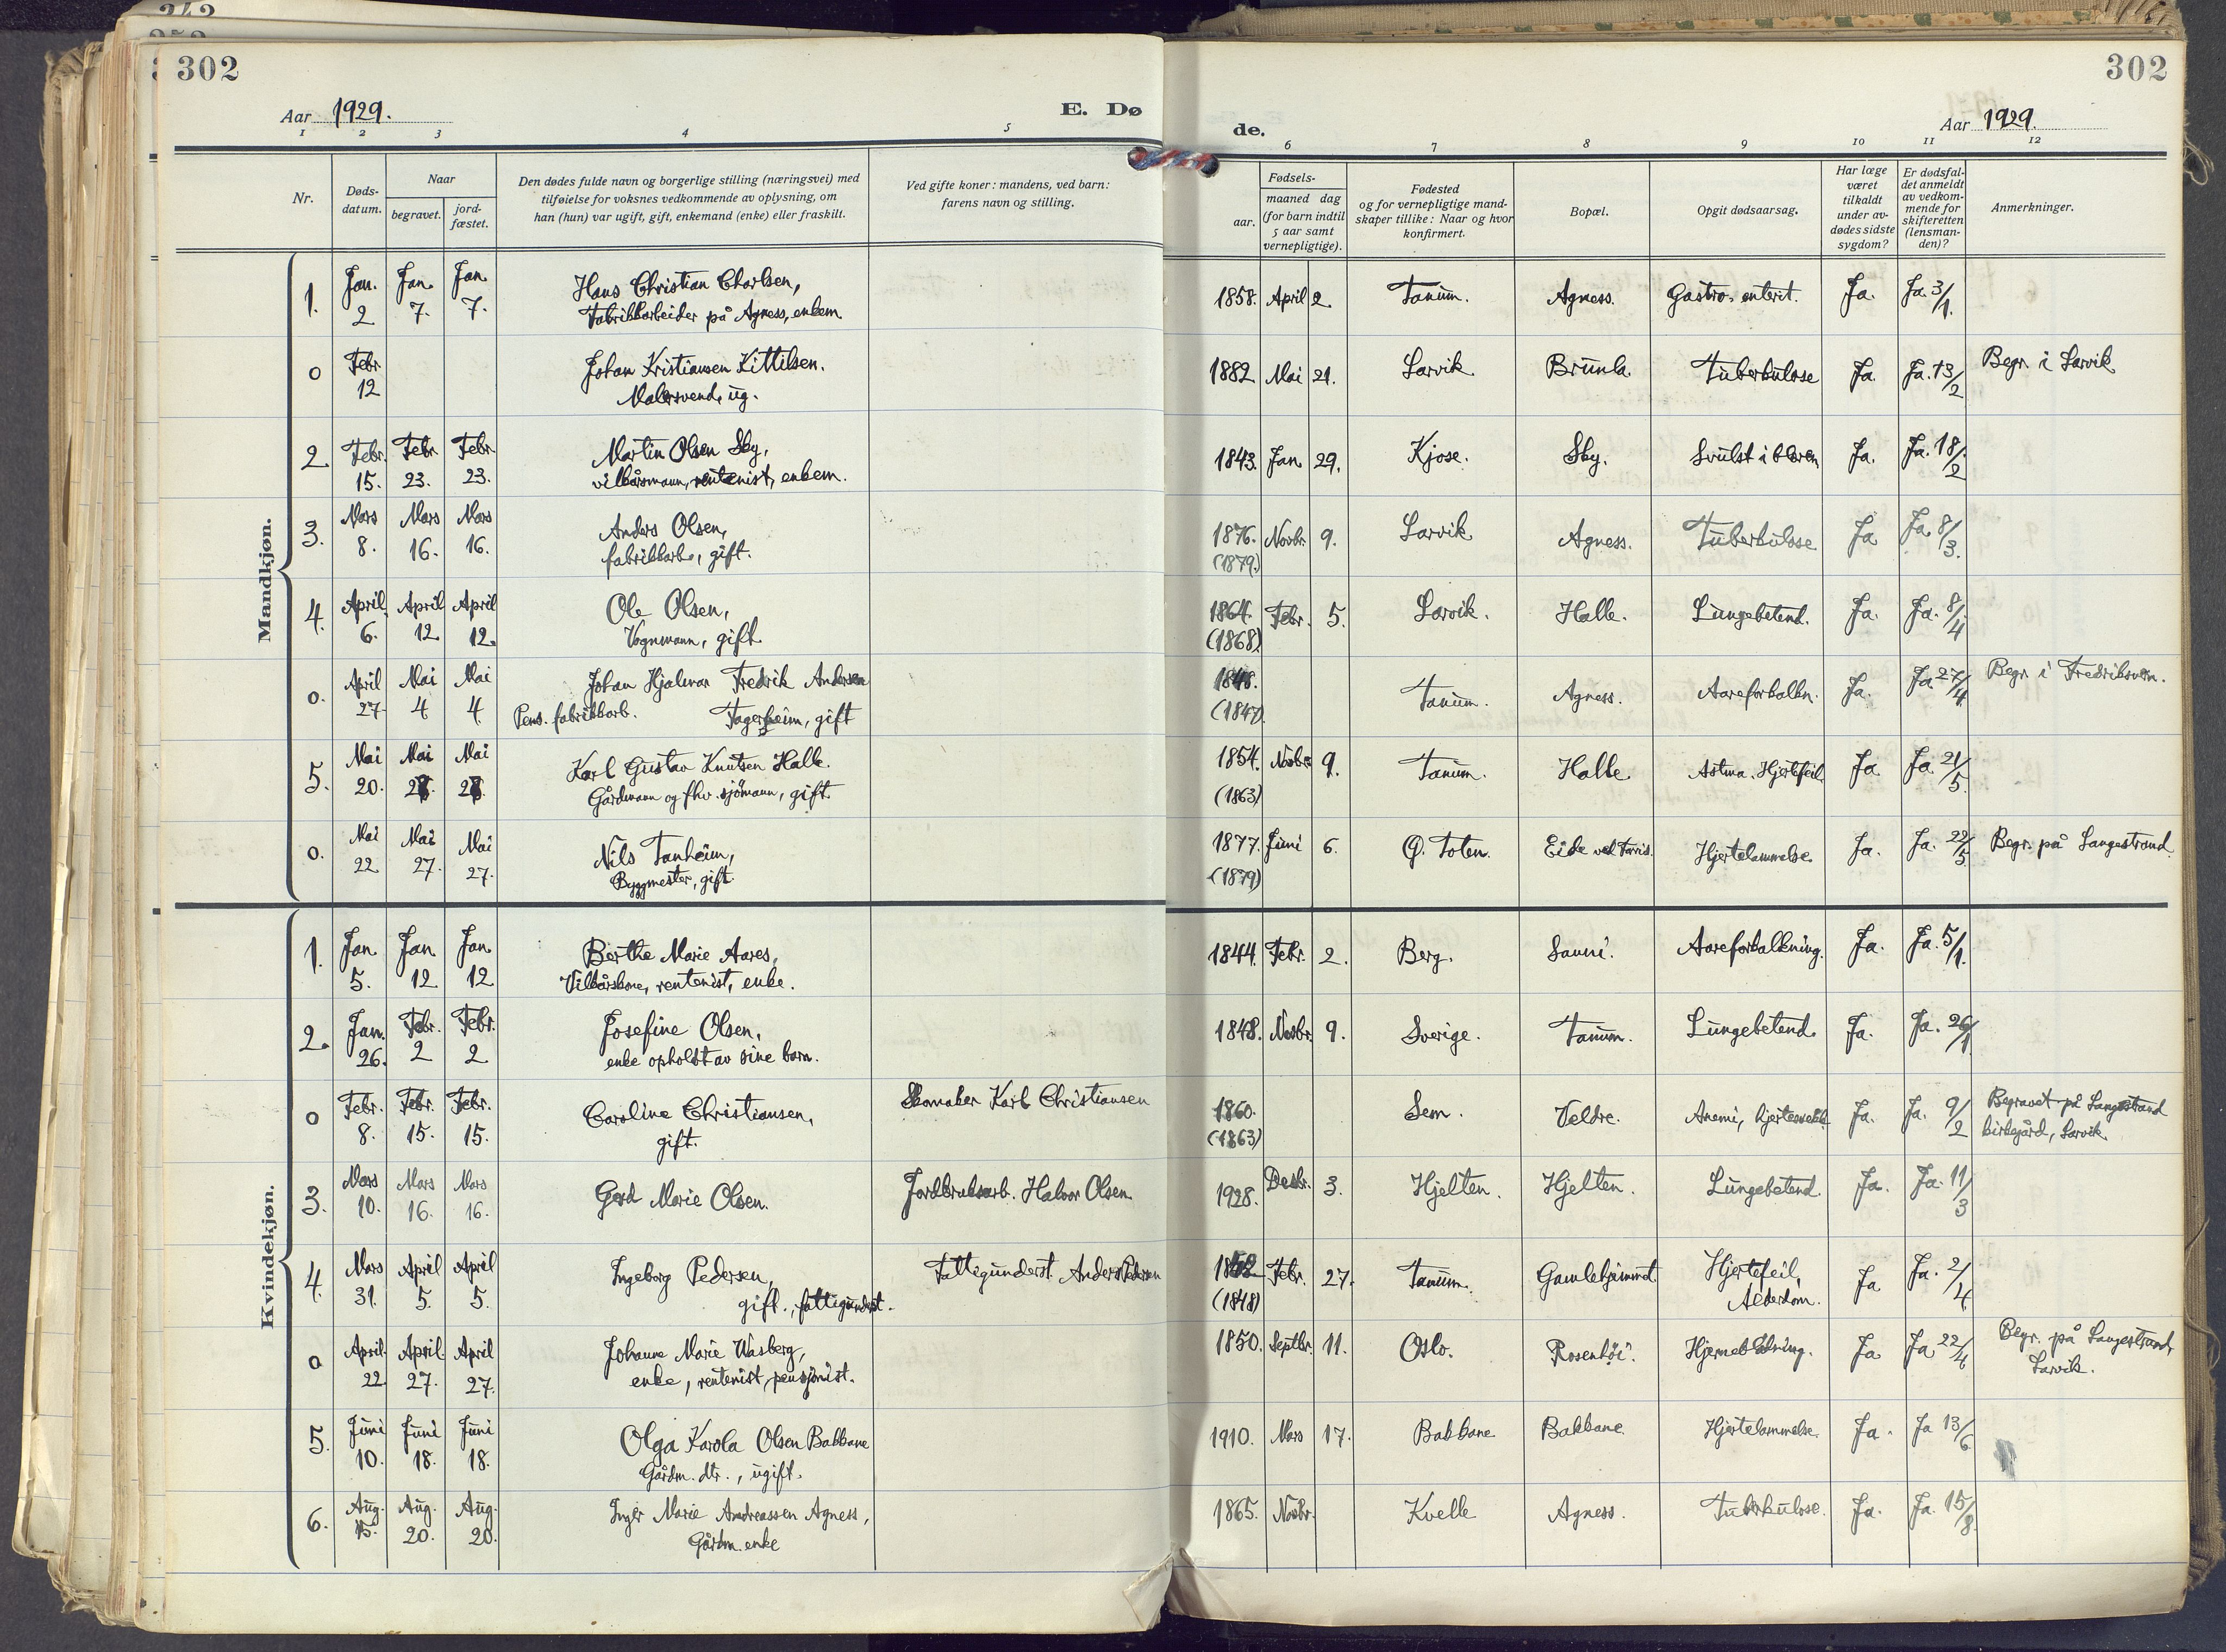 302
Aar 1929.
E. Dø
1 2 3 4 5
Nr.
Døds-
datum.
Naar
begravet.
jord-
fæstet.
Den dødes fulde navn og borgerlige stilling (næringsvei) med
tilføielse for voksnes vedkommende av oplysning, om
han (hun) var ugift, gift, enkemand (enke) eller fraskilt.
Ved gifte koner: mandens, ved barn:
farens navn og stilling.
302
de.
Aar 1929.
6 7 8 9 10 11 12
Fødsels-
aar.
maaned dag
(for barn indtil
5 aar samt
vernepligtige).
Fødested
og for vernepligtige mand-
skaper tillike: Naar og hvor
konfirmert.
Bopæl.
Opgit dødsaarsag.
Har læge
været
tilkaldt
under av-
dødes sidste
sygdom?
Er dødsfal-
det anmeldt
av vedkom-
mende for
skifteretten
(lensman-
den)?
Anmerkninger.
Mandkjøn.
1. Jan. 2 Jan. 7. Jan. 7. Hans Christian Charlsen,
Fabrikkarbeider på Agness, enkem.
1858. April 2. Tanum. Agness. Gastro-enterit. Ja. Ja. 3/1.
0 Febr. 12 Johan Kristiansen Kittilsen.
Malersvend, ug.
1882 Mai 21. Larvik. Brunla. Tuberkulose Ja. Ja. 13/2 Begr. i Larvik
2. Febr. 15. Febr. 23. Febr. 23. Martin Olsen Sky,
vilkårsmann, rentenist, enkem.
1843. Jan. 29. Kjose. Sky. Svulst i blæren Ja. Ja. 18/2
3. Mars 8. Mars 16. Mars 16. Anders Olsen,
fabrikkarb., gift.
1876. (1879.) Novbr. 9. Larvik Agness. Tuberkulose Ja Ja. 8/3.
4. April 6. April 12. April 12. Ole Olsen,
Vognmann, gift.
1864. (1868) Febr. 5. Larvik. Halle. Lungebetend. Ja. Ja. 8/4
0. April 27 Mai 4. Mai 4. Johan Hjalmar Fredrik Andersen
Pens. fabrikkarb. Fagerheim, gift
1848. (1847). Tanum. Agness. Aareforkalkn. Ja. Ja 27/4 Begr. i Fredriksvern.
5. Mai 20. Mai 28. Mai 28. Karl Gustav Knutsen Halle.
Gårdmann og fhv. sjömann, gift.
1854. (1863) Novbr. 9. Tanum. Halle. Astma. Hjertefeil. Ja. Ja. 21/5.
0. Mai 22 Mai 27. Mai 27. Nils Tanheim,
Byggmester, gift.
1877. (1879) Juni 6. Ø. Toten. Eide ved Farris. Hjertelammelse. Ja. Ja. 22/5 Begr. på Langestrand.
Kvindekjøn.
1. Jan. 5. Jan. 12 Jan. 12 Berthe Marie Aares,
Vilkårskone, rentenist, enke.
1844. Febr. 2. Berg. Sauni. Aareforkalkning. Ja. Ja. 5/1.
2. Jan. 26. Febr. 2 Febr. 2 Josefine Olsen,
enke opholdt av sine barn.
1848. Novbr. 9. Sverige. Tanum. Lungebetend. Ja. Ja. 26/1
0 Febr. 8. Febr. 15. Febr. 15. Caroline Christiansen,
gift.
Skomaker Karl Christiansen
1860. (1863) Sem. Veldre. Anemi, hjertesvekk. Ja. Ja. 9/2 Begravet på Langestrand
kirkegård, Larvik.
3. Mars 10. Mars 16. Mars 16. Gerd Marie Olsen. Jordbruksarb. Halvor Olsen.
1928. Desbr. 3. Hjelten. Hjelten. Lungebetend. Ja. Ja. 11/3
4. Mars 31. April 5. April 5. Ingeborg Pedersen,
gift., fattigunderst.
Fattigunderst. Anders Pedersen
(1848) Febr. 27. Tanum. Gamlehjemmet. Hjertefeil,
Alderdom. Ja Ja. 2/4
0 April 22. April 27. April 27. Johanne Marie Wasberg,
enke, rentenist, pensjonist.
1850. Septbr. 11. Oslo. Rosenhöi. Hjerneblödning. Ja Ja 22/4 Begr. på Langestrand,
Larvik.
5. Juni 10. Juni 18. Juni 18. Olga Karola Olsen Bakkane
Gårdm. dtr., ugift.
1910. Mars 17. Bakkane Bakkane. Hjertelammelse. Ja. Ja 13/6
6. Aug. 15. Aug. 20. Aug. 20. Inger Marie Andreassen Agness,
Gårdm. enke
1865. Novbr. Kvelle Agness. Tuberkulose. Ja. Ja. 15/8.